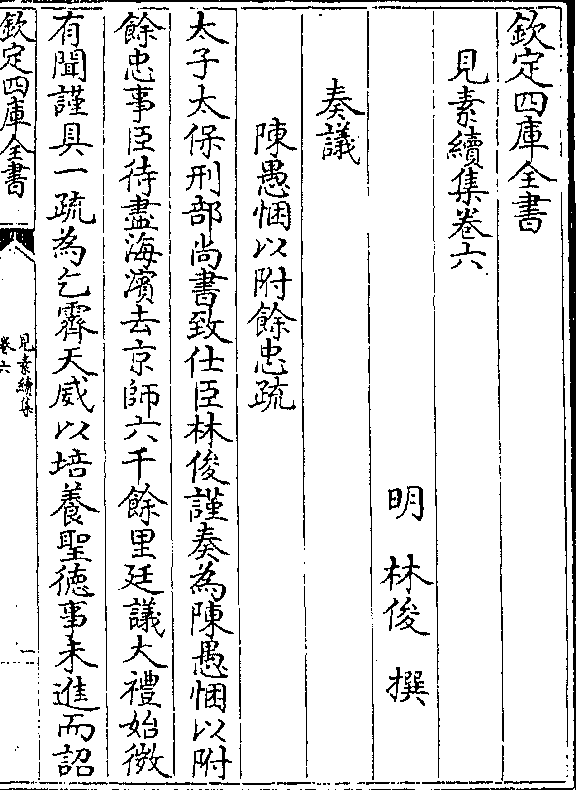 欽定四庫全書
見素續集卷六
明 林俊 撰
奏議
陳愚悃以附餘忠疏
太子太保刑部尚書致仕臣林俊謹奏為陳愚悃以附
餘忠事臣待盡海濱去京師六千餘里廷議大禮始微
有聞謹具一疏為乞霽天威以培養聖德事未進而詔
欽定四庫全書
見素續集
卷六
一